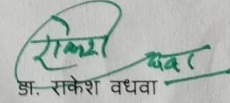 राकेश वधवा
डा. राकेश वधवा